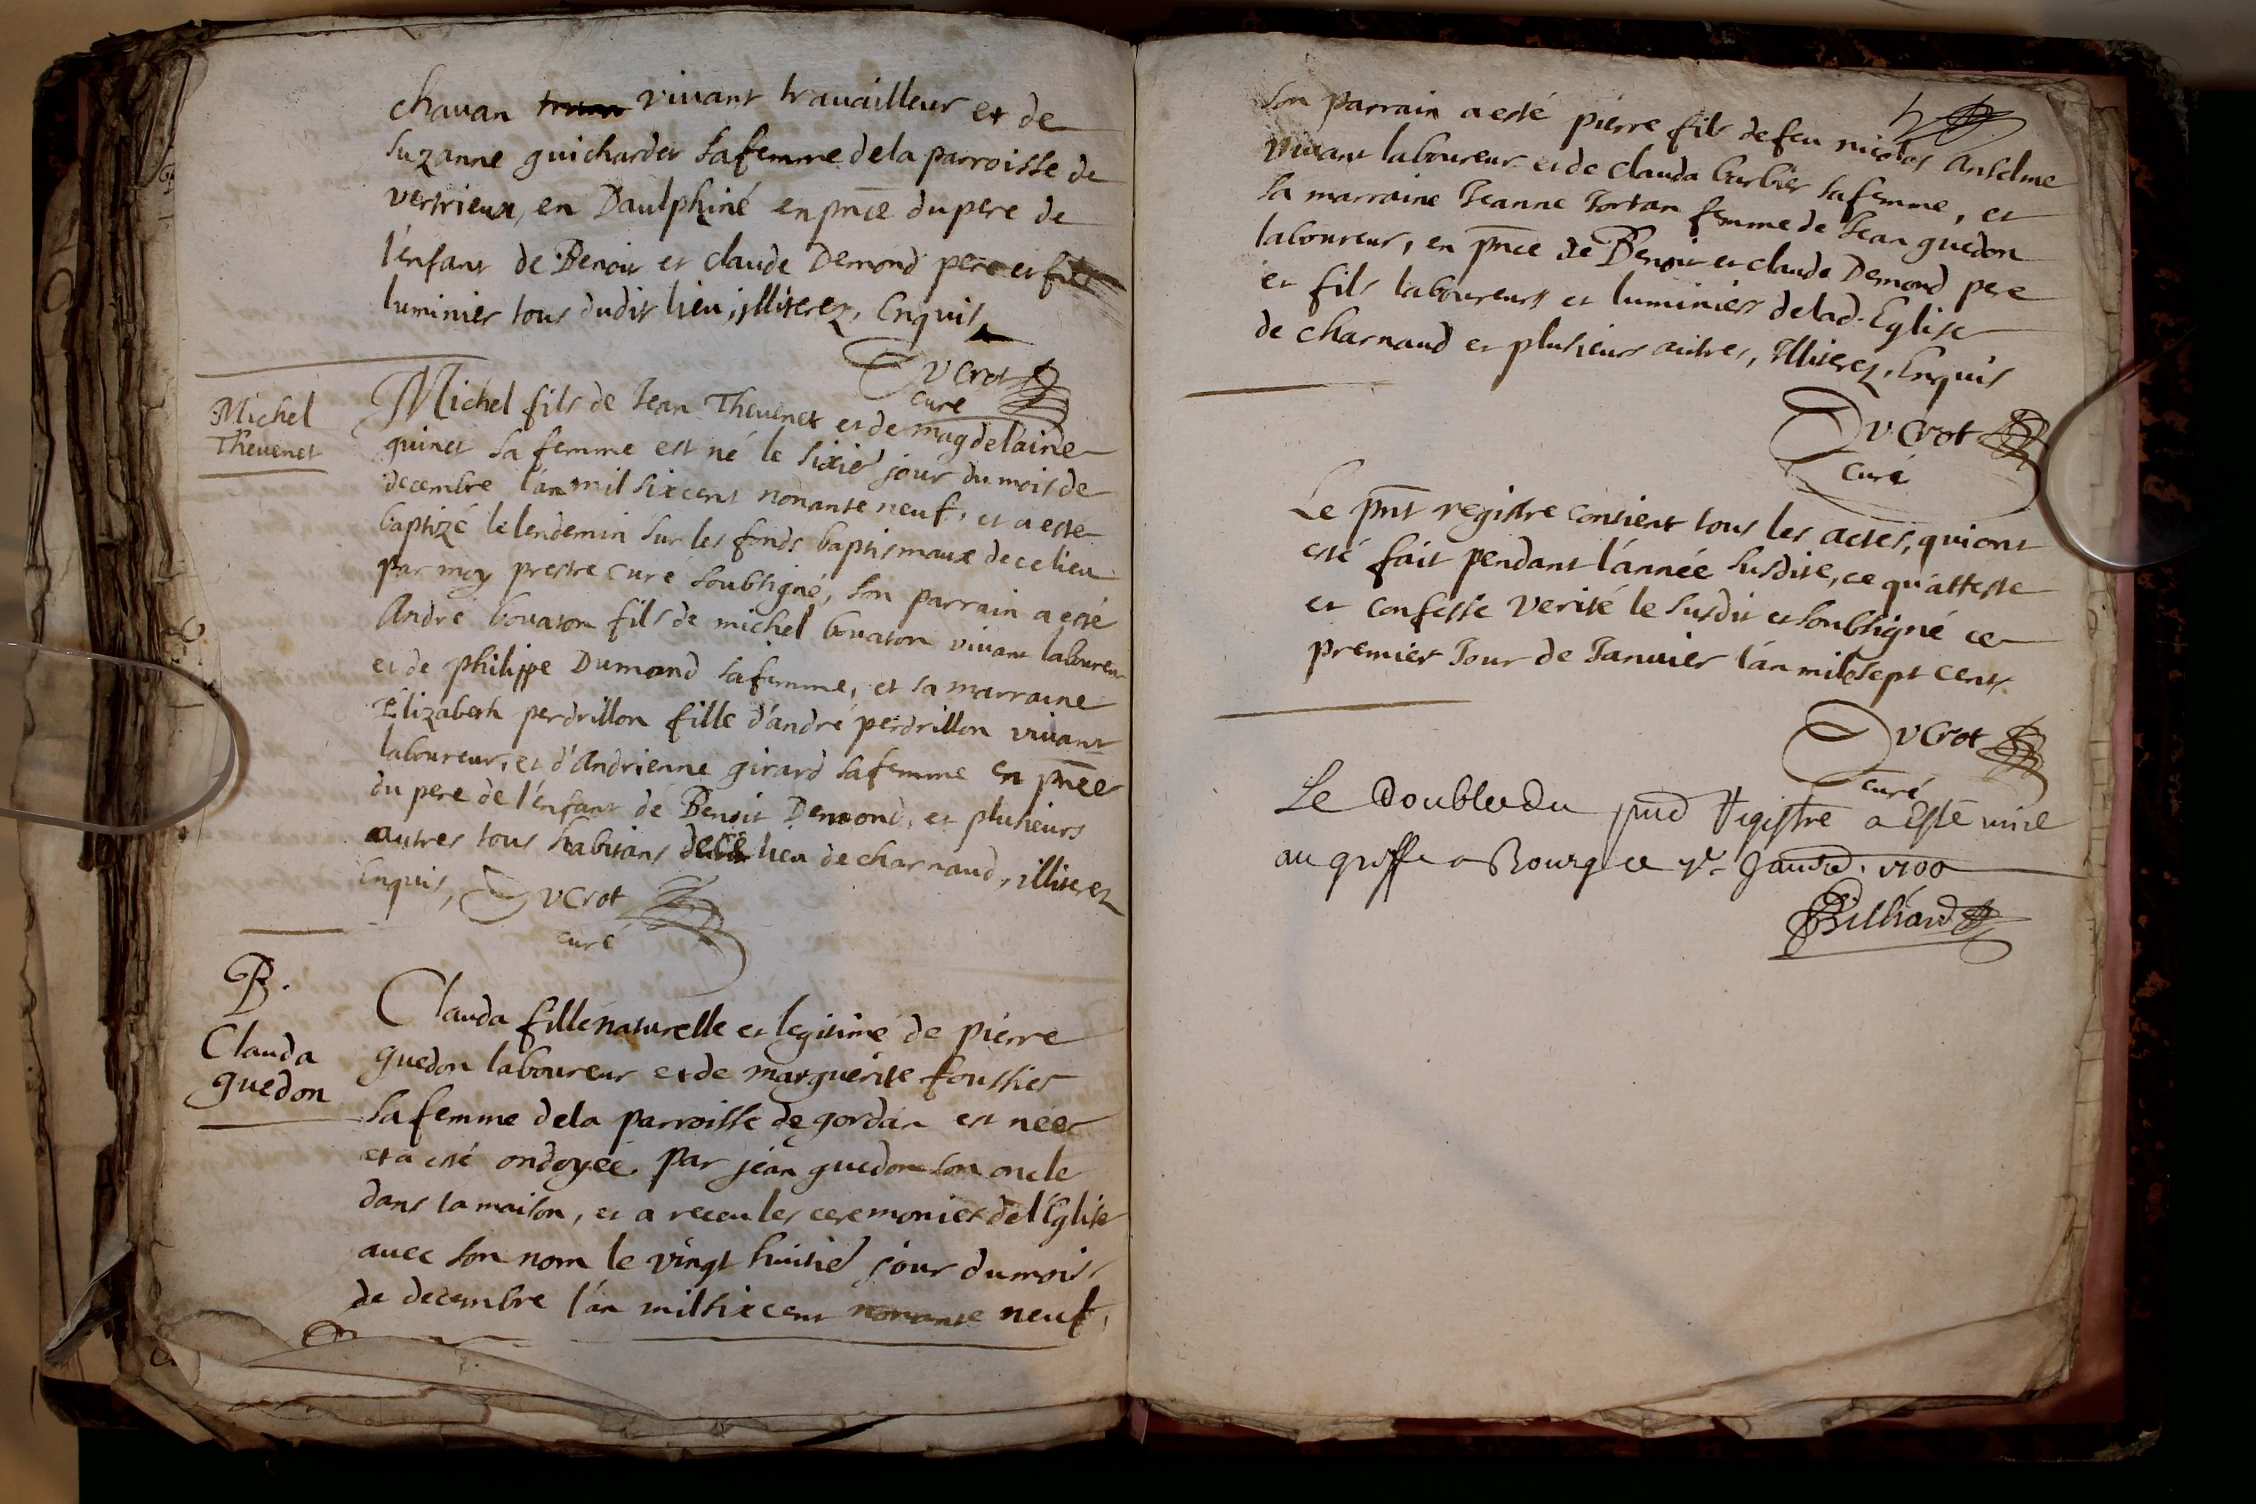 chavan vivant travailleur et de
suzanne guichardet sa femme de la parroisse de
vertrieux, en Daulphiné en pnce du pere de
l'enfant de Benoit et claude Demond pere et fils
luminier tous dudit lieu, illiterez, Enquis
Ducrot
curé
Michel
Thevenet
Michel fils de Jean Thevenet et de magdelaine
quinet sa femme est né le sixie jour du mois de
decembre l'an mil six cent nonante neuf, et a este
baptizé le lendemin sur les fonds baptismaux de ce lieu
par moy prestre curé soubsigné, son parrain a esté
André bouaton fils de michel bouaton vivant laboureur
et de philippe Dumond sa femme, et sa marraine
Elizabeth perdrillon fille d'andré perdrillon vivant
laboureur, et d'Andrienne girard sa femme en pnce
du pere de l'enfant de Benoit Demond, et plusieurs
autres tous habitans de ce lieu de charnaud, illiterez
Enquis, Ducrot
curé
B.
Clauda
guedon
Clauda fille naturelle et legitime de pierre
guedon laboureur et de marguerite foussier
sa femme de la parroisse de gordan est née
et a esté ondoyée par jean guedon son oncle
dans la maison, et a receu les ceremonies de l'Eglise
avec son nom le vingt huitie jour du mois
de decembre l'an mil six cent nonante neuf,
son parrain a esté pierre fils de feu nicolas Anselme
vivant laboureur et de clauda barbier sa femme, et
sa marraine Jeanne Tortan femme de Jean guedon
laboureur, en pnce de Benoit et claude Demond pere
et fils laboureurs et luminiers de lad. Eglise
de charnaud et plusieurs autres, Illiterez, Enquis
Ducrot
curé
Le pnt registre contient tous les actes, qui ont
esté fait pendant l'année susdite, ce qu'atteste
et confesse verité le susdit et soubsigné ce
premier Jour de Janvier l'an mil sept cents.
Ducrot
curé
Le double du pnd Registre a esté mis
au greffe a Bourg ce janvd. 1700
Billiard